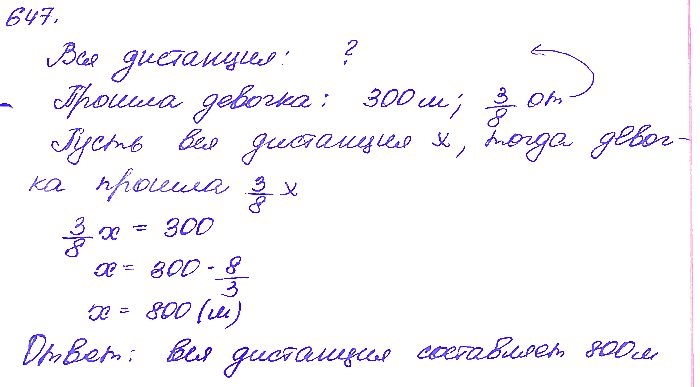 647.
Вся дистанция: ?
- Прошла девочка: 300 м; 3/8 от
Пусть вся дистанция x, тогда девоч-
ка прошла 3/8 x
3/8 x = 300
x = 300 · 8/3
x = 800 (м)
Ответ: вся дистанция составляет 800 м